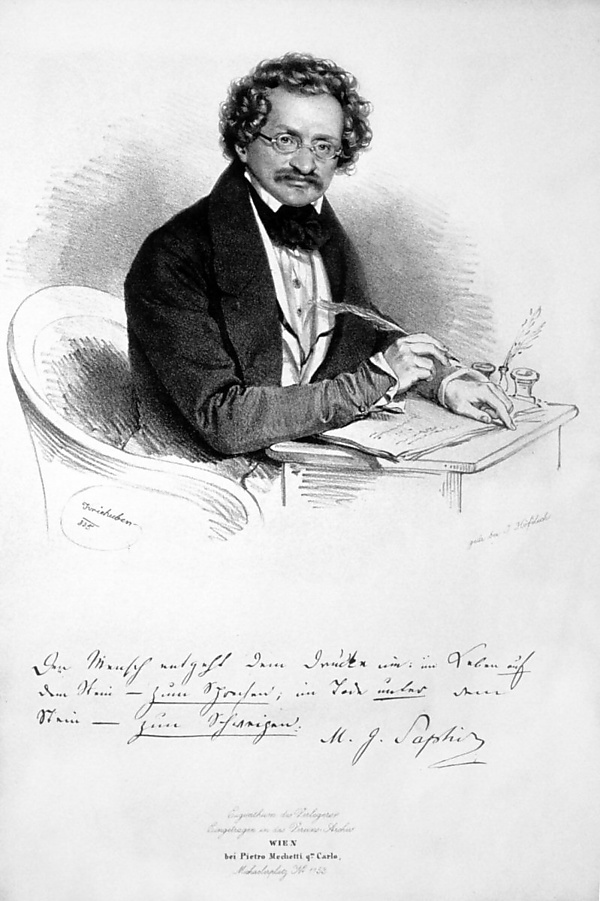 Kriehuber
gedr. bei J. Höfelich
Der Mensch entgeht dem Drucke nie: im Leben auf
dem Stein — zum Sprechen; im Tode unter dem
Stein — zum Schweigen.
M. G. Saphir
Eigenthum des Verlegers
Eingetragen in das Vereins-Archiv
WIEN
bei Pietro Mechetti qm Carlo,
Michaelerplatz No. 1153